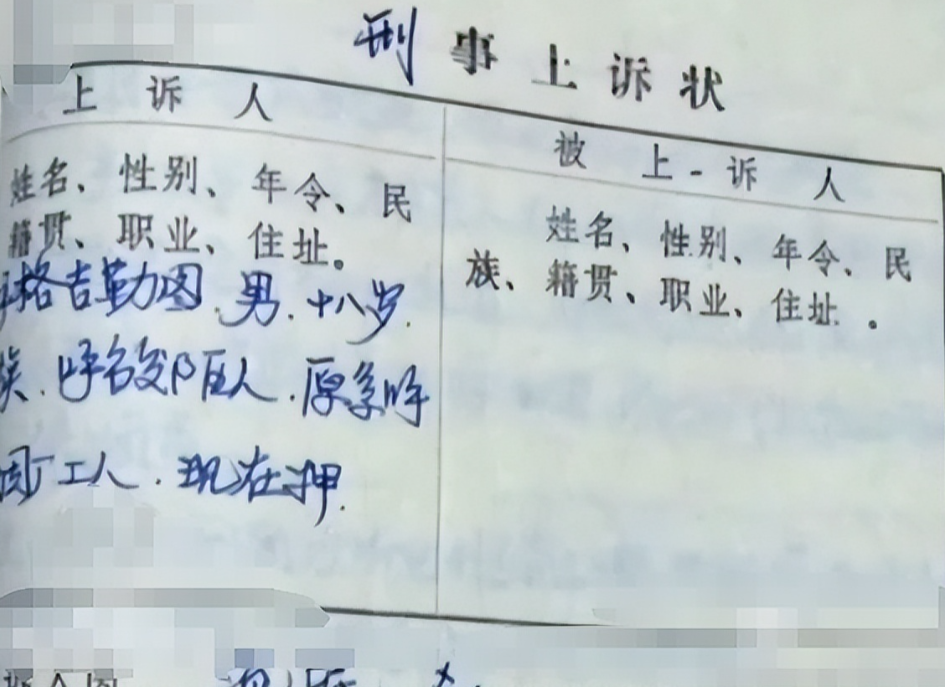 刑事上诉状
上诉人
姓名、性别、年令、民
籍贯、职业、住址。
格吉勒图.男.十八岁.
族.呼名郊区人.原系呼
工人.现在押.
被上-诉人
姓名、性别、年令、民
族、籍贯、职业、住址。